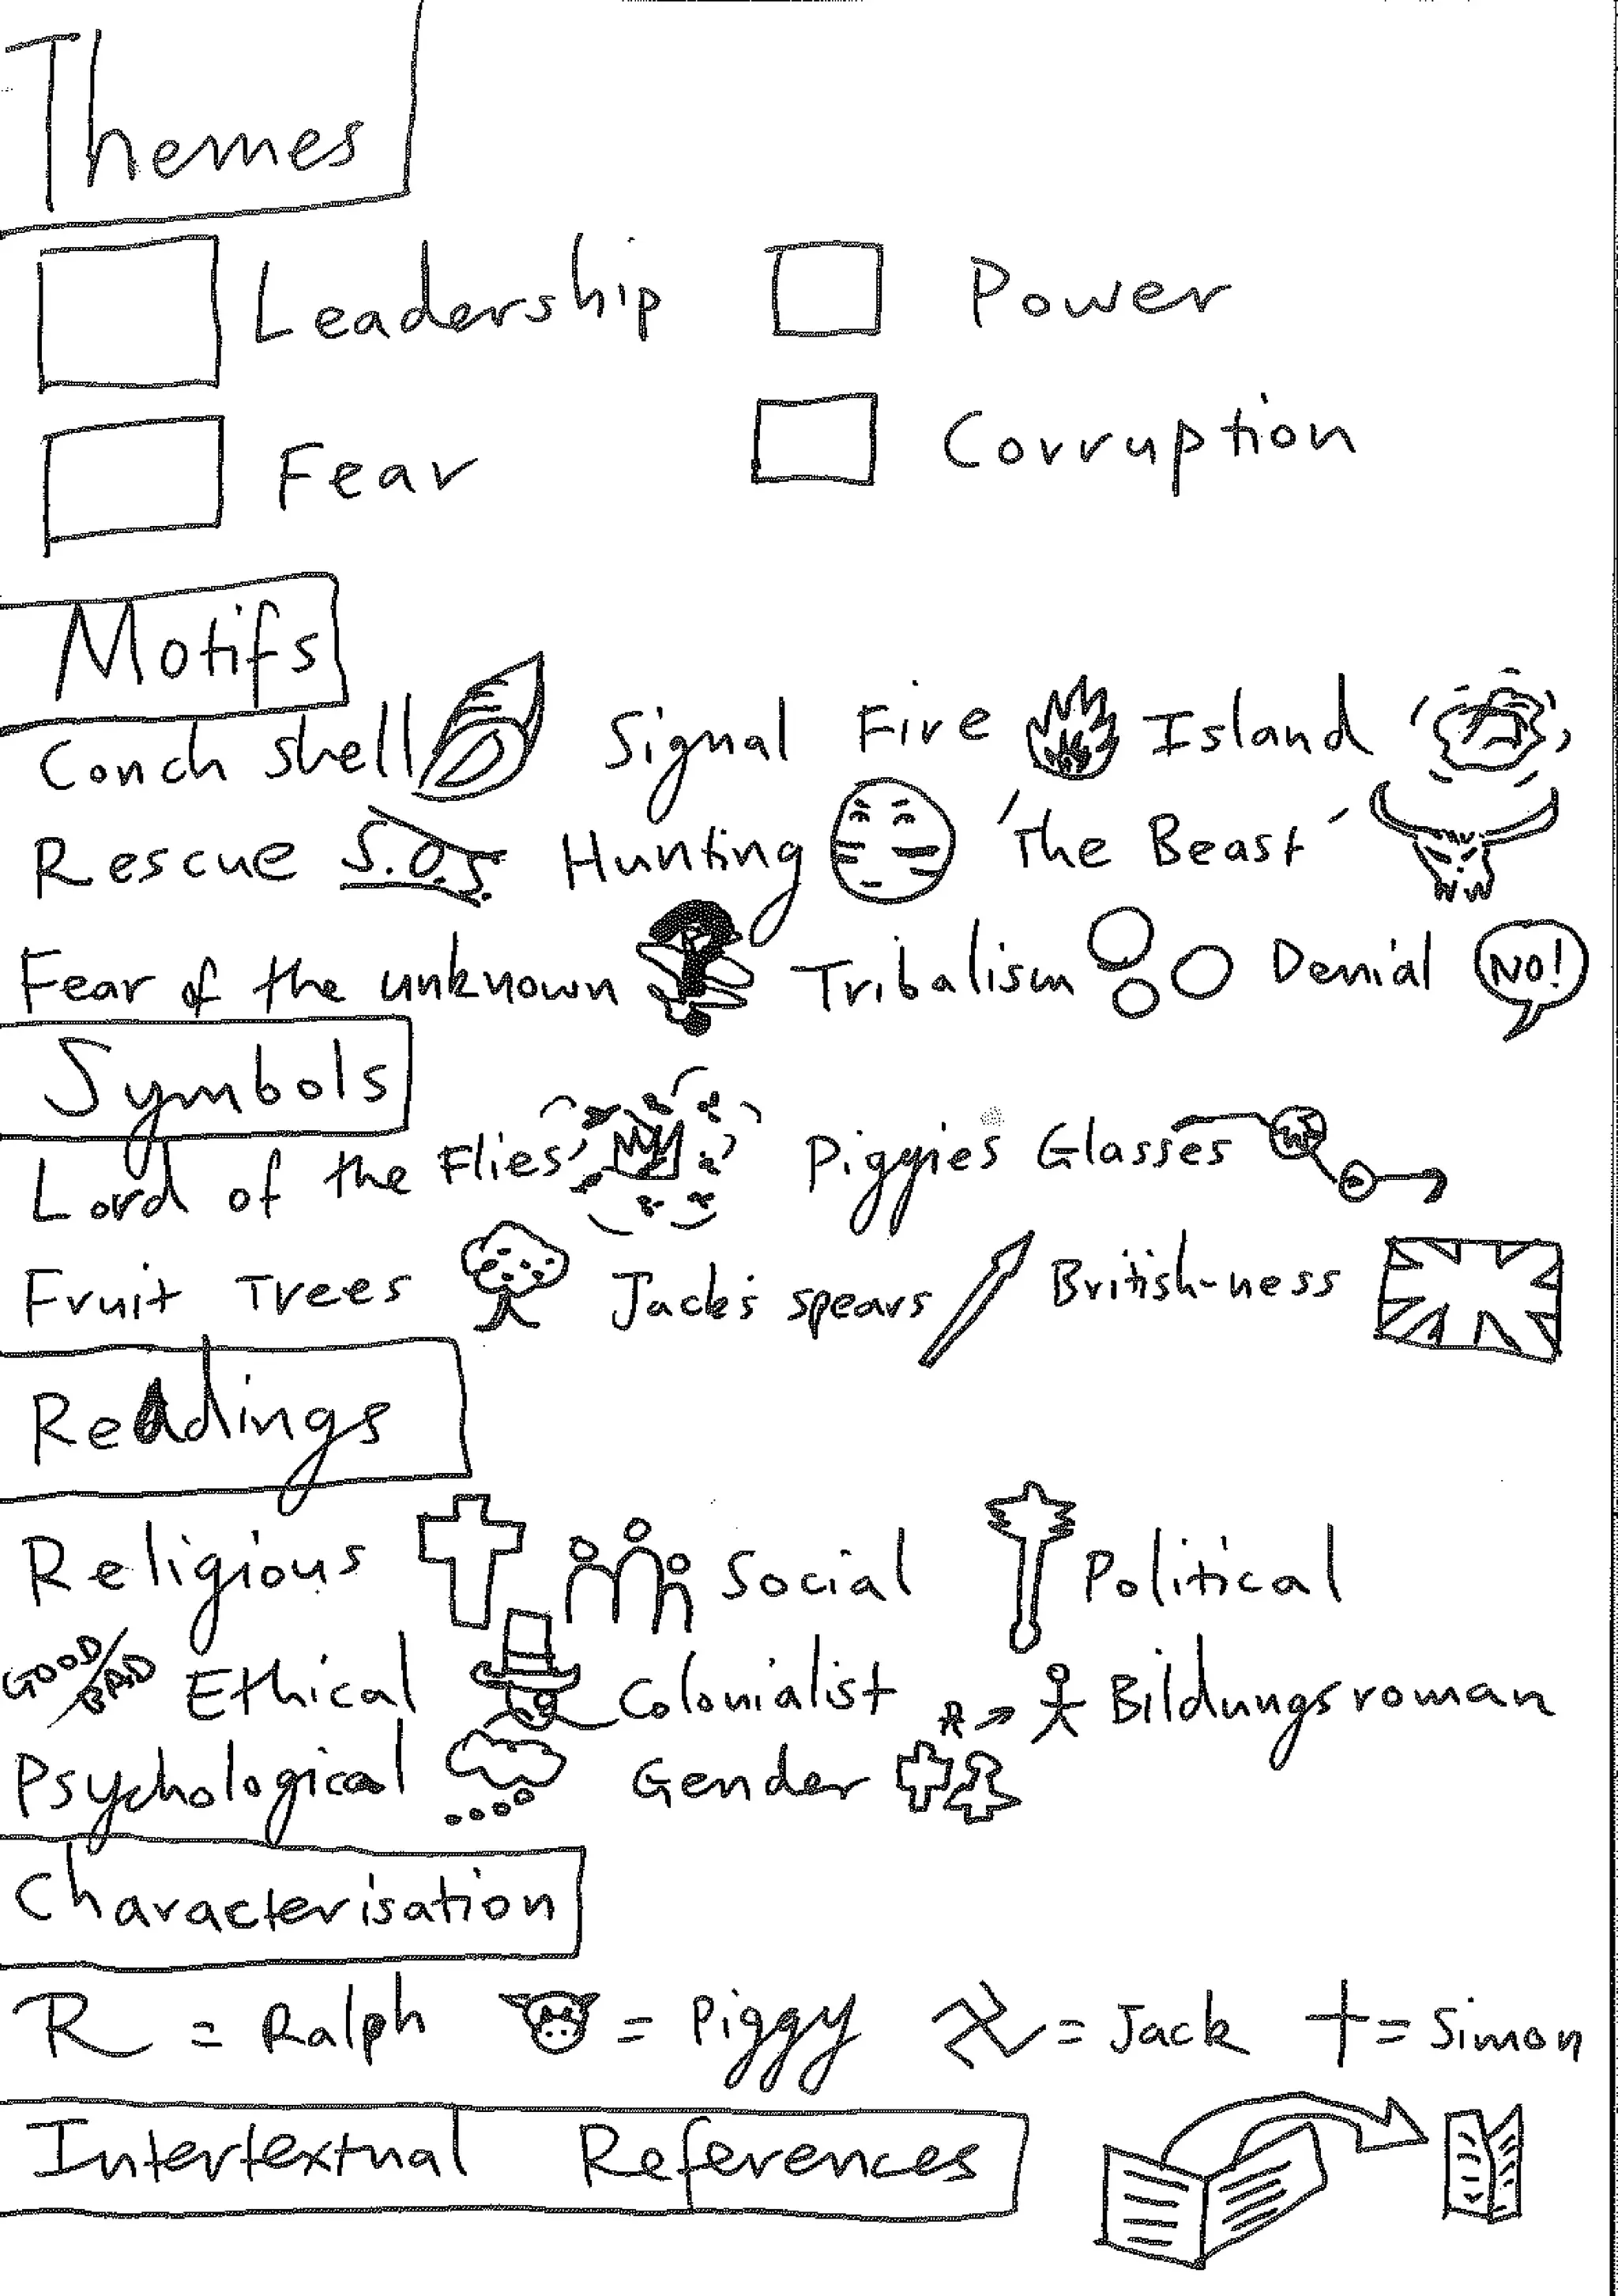 Themes
Leadership Power
Fear Corruption
Motifs
Conch shell Signal Fire Island
Rescue S.O.S. Hunting 'The Beast'
Fear of the unknown Tribalism Denial NO!
Symbols
Lord of the Flies Piggyie's Glasses
Fruit Trees Jack's spears British-ness
Readings
Religious Social Political
GOOD/BAD Ethical Colonialist Bildungsroman
Psychological Gender
Characterisation
R = Ralph = Piggy = Jack = Simon
Intertextual References